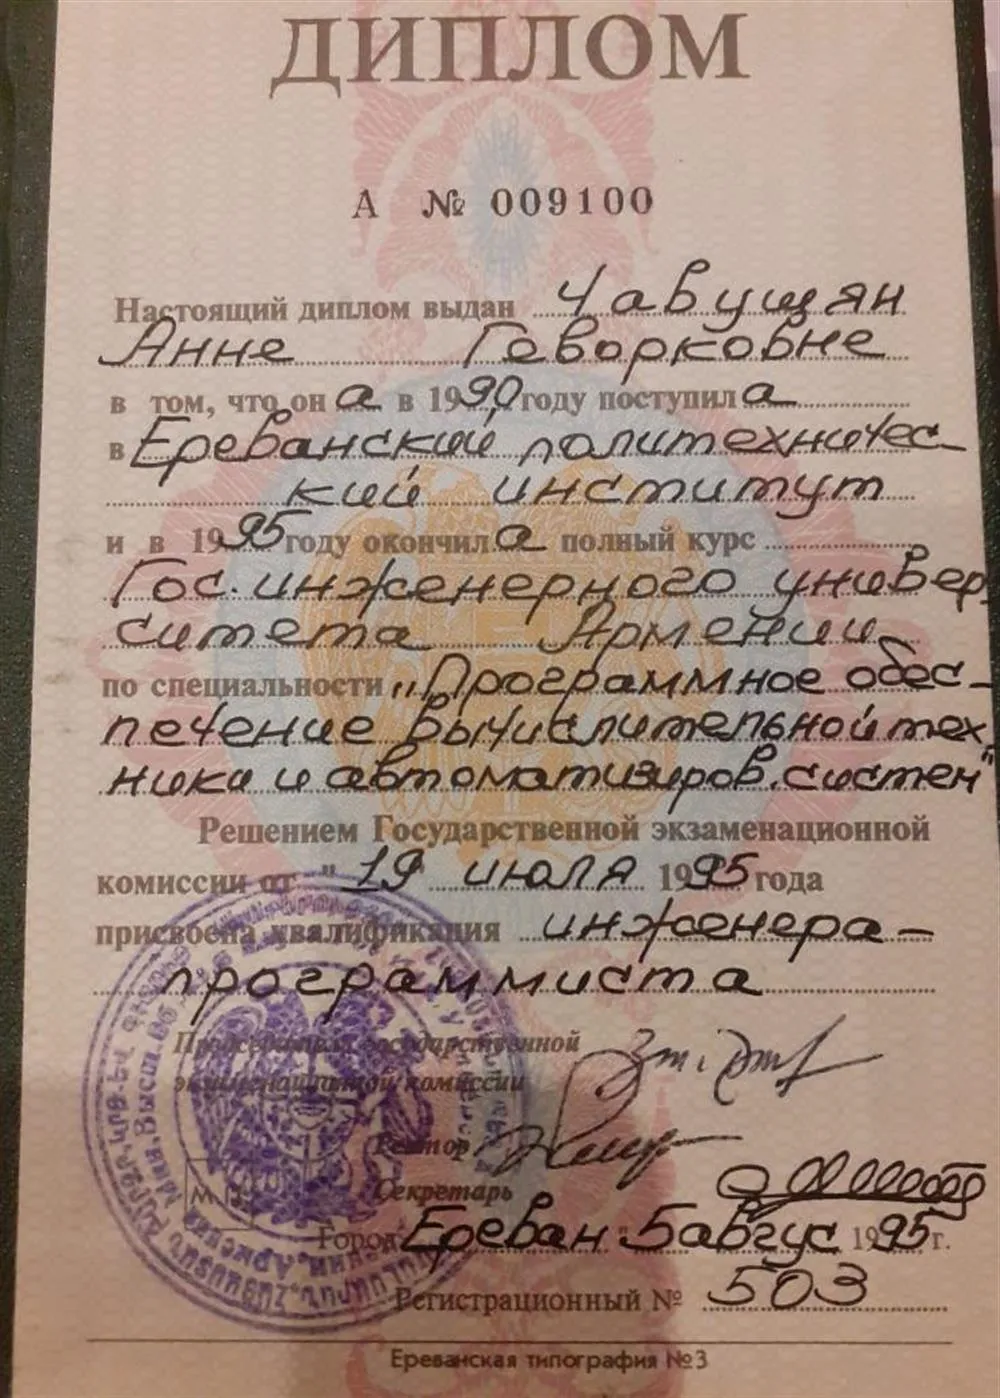 ДИПЛОМ
А № 009100
Настоящий диплом выдан Чавущян
Анне Геворковне
в том, что он а в 1990 году поступил а
в Ереванский политехничес-
кий институт
и в 1995 году окончил а полный курс
Гос. инженерного универ-
ситета Армении
по специальности „Программное обес-
печение вычислительной тех
ники и автоматизиров. систем"
Решением Государственной экзаменационной
комиссии от " 19 " июля 1995 года
присвоена квалификация инженера-
программиста
Председатель государственной
экзаменационной комиссии
Ректор
Секретарь
М.П.
Город Ереван 5 авгус 1995 г.
Регистрационный № 503
Ереванская типография №3